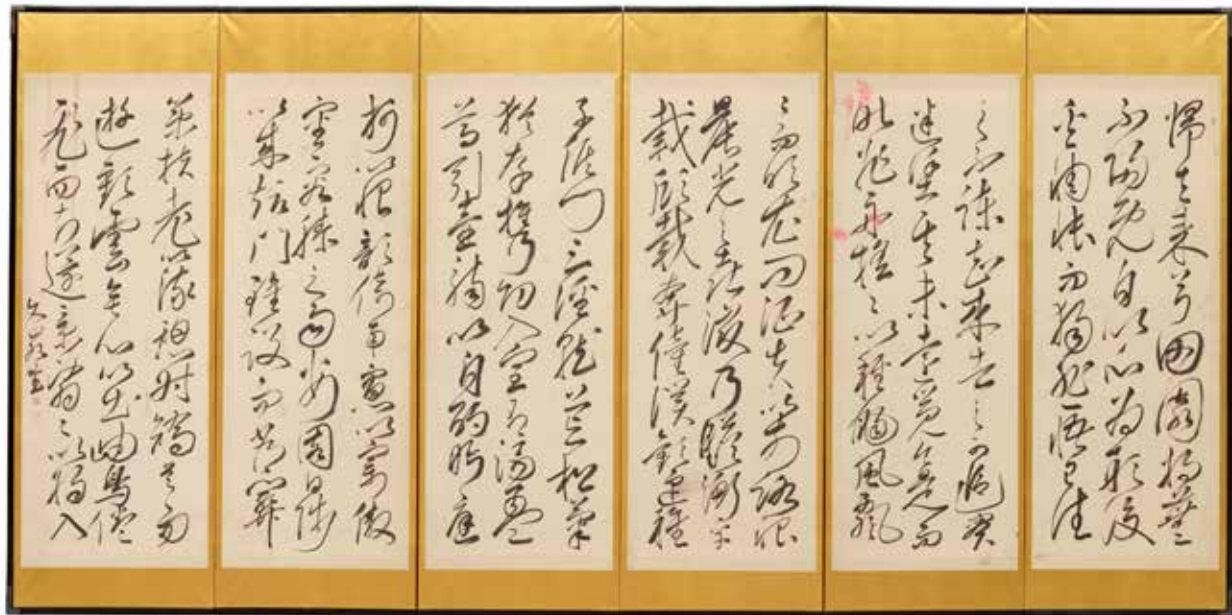 帰去来兮田園将蕪
不帰既自以心為形役
奚惆悵而独悲悟已往
之不諫知来者之可追実
迷途其未遠覚今是而
昨非舟揺々以軽颺風飄
々而吹衣問征夫以前路恨
晨光之熹微乃瞻衡宇
載欣載奔僮僕歓迎稚
子候門三逕就荒松菊
猶存携幼入室有酒盈
尊引壺觴以自酌眄庭
柯以怡顔倚南窓以寄傲
審容膝之易安園日渉
以成趣門雖設而常関
策扶老以流憩時矯首而
遐観雲無心以出岫鳥倦
飛而知還景翳々以将入